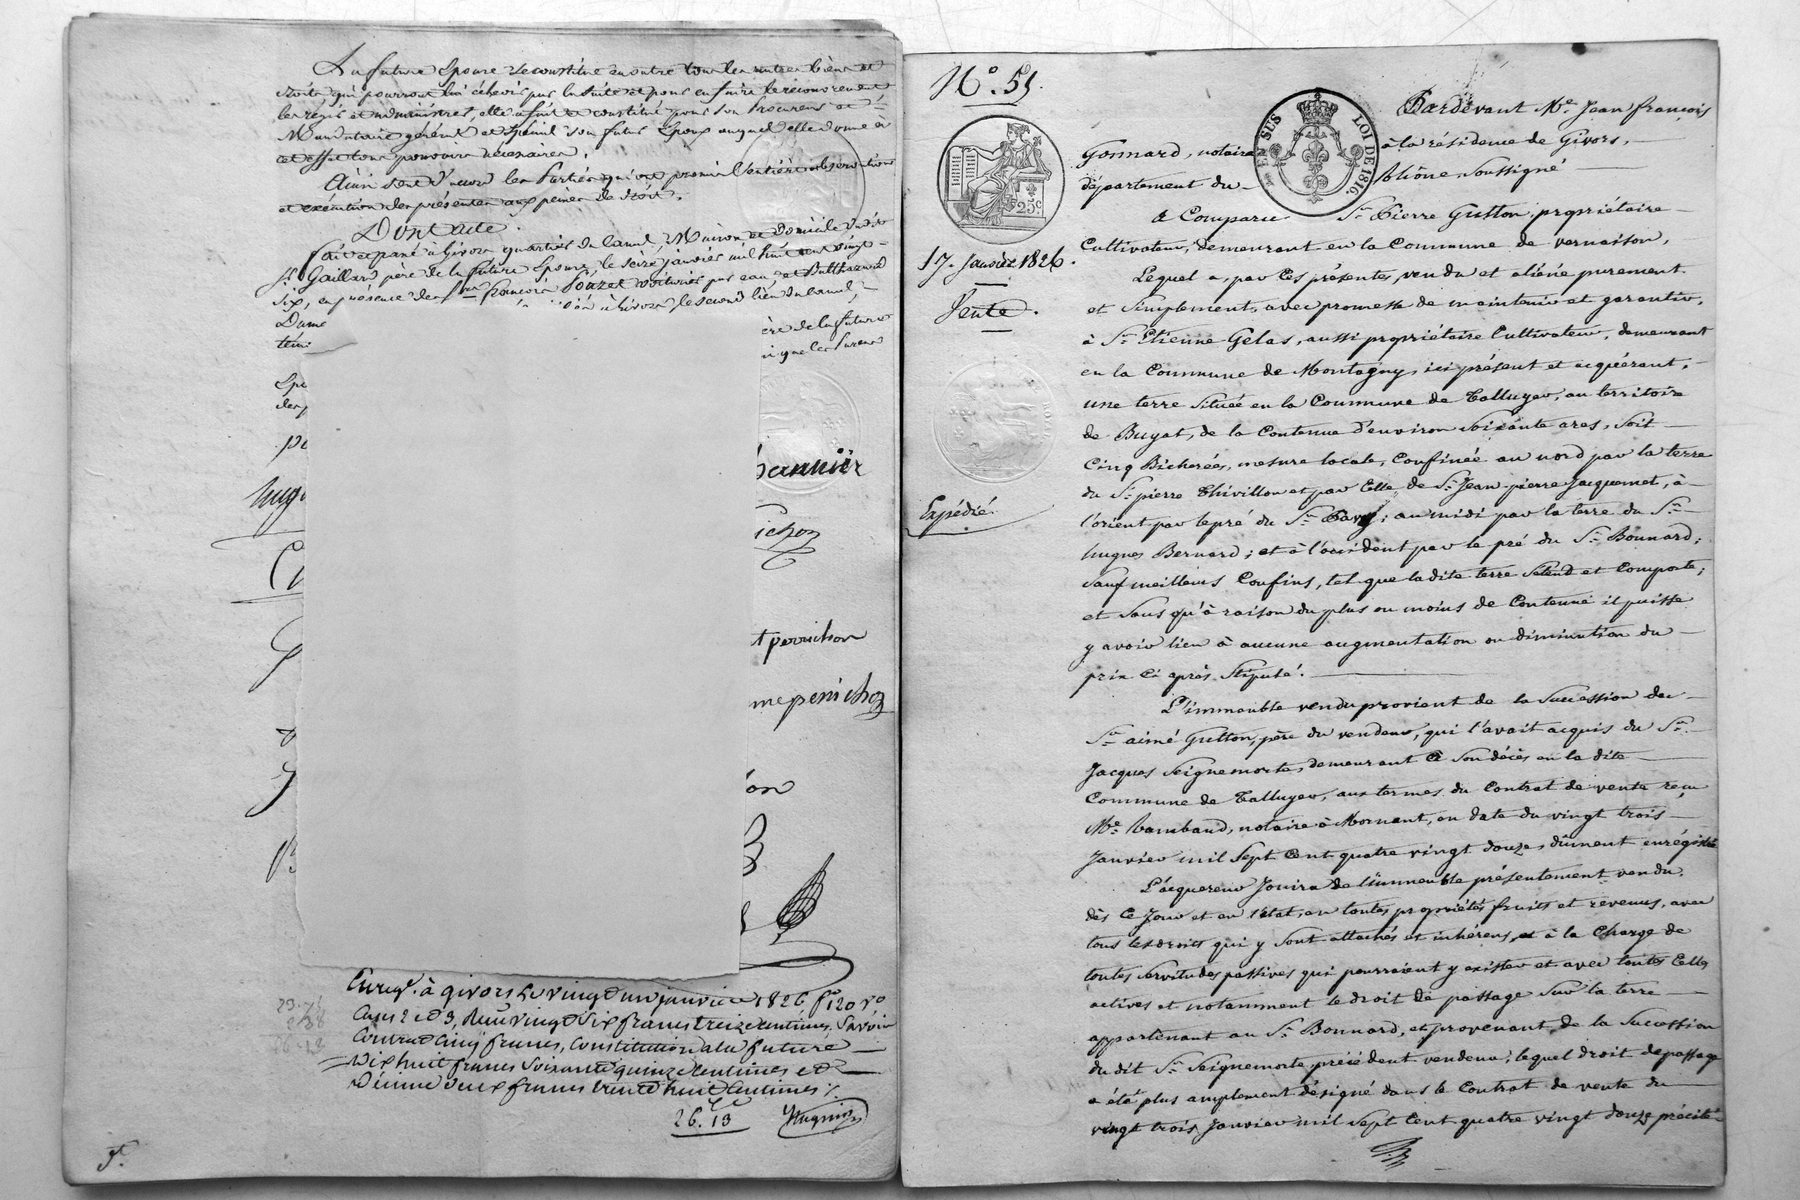 La future Epouse se constitue en outre tous les autres biens et
droits qui pourront lui échéoir par la suite et pour en faire le recouvrement
les régir et administrer, elle a fait et constitué pour son Procureur et
Mandataire général et spécial son futur Epoux auquel elle donne à
cet effet tous pouvoirs nécessaires.
Ainsi sont d'accord les Parties qui ont promis l'entière observation
et exécution des présentes aux peines de droit.
Dont acte.
Fait et passé à Givors quartier du canal, Maison et domicile dudit
Sr. Gaillard père de la future Epouse, le seize janvier mil huit cent vingt-
six, en présence de Srs. françois Pouzet voiturier par eau, et Balthazard
à Givors le second lieu du canal,
Dame
ère de la future
témi
que les Parens
Epo
des
pe
hannier
hug
ichon
C
t perrichon
me perrichon
on
Enreg. à givors le vingt un janvier 1826 fo 120 Vo
Cases 2 et 3, Reçu vingt six francs treize centimes. Savoir
Contrat Cinq francs, Constitution a la future
Dix huit francs soixante quinze centimes et
Décime deux francs trente huit centimes /.
26. 13
23.75
2.38
26.13
No. 51.
Pardevant Me. Jean françois
Gonnard, notaire à la résidence de Givors,
département du Rhône soussigné
EN SUS LOI DE 1816.
25c
a Comparu Sr. Pierre Gutton, propriétaire
Cultivateur, demeurant en la Commune de vernaison,
17. Janvier 1826.
Vente.
Expédié.
Lequel a, par Ces présentes, vendu et aliéné purement
et simplement, avec promesse de maintenir et garantir,
à Sr. Etienne Gelas, aussi propriétaire Cultivateur, demeurant
en la Commune de Montagny, ici présent et acquérant,
une terre située en la Commune de Talluyer, au territoire
de Buyat, de la Contenue d'environ soixante ares, soit
Cinq Bicherées, mesure locale, Confinée au nord par la terre
du Sr. pierre Thivillon et par Celle de Sr. Jean-pierre Jacquemet, à
l'orient par le pré du Sr. ; au midi par la terre du Sr.
hugues Bernard; et à l'occident par le pré du Sr. Bonnard;
sauf meilleurs Confins, tel que ladite terre s'étend et Comporte;
et sans qu'à raison du plus ou moins de Contenue il puisse
y avoir lieu à aucune augmentation ou diminution du
prix Ci après stipulé.
L'immeuble vendu provient de la succession de
Sr. aimé Gutton, père du vendeur, qui l'avait acquis du Sr.
Jacques Seignemorte, demeurant à son décès en la dite
Commune de Talluyer, aux termes du Contrat de vente reçu
Me. Rambaud, notaire à Mornant, en date du vingt trois
Janvier mil sept Cent quatre vingt douze, dûment enrégistré
L'acquereur Jouira de l'immeuble présentement vendu,
dès Ce Jour et en l'état, en toutes propriétés fruits et revenus, avec
tous les droits qui y sont attachés et inhérens, et à la Charge de
toutes servitudes passives qui pourraient y exister et avec toutes Celles
actives et notamment le droit de passage sur la terre
appartenant au Sr. Bonnard, et provenant de la succession
du dit Sr. Seignemorte précédent vendeur; lequel droit de passage
a été plus amplement désigné dans le Contrat de vente du
vingt trois Janvier mil sept Cent quatre vingt douze précité